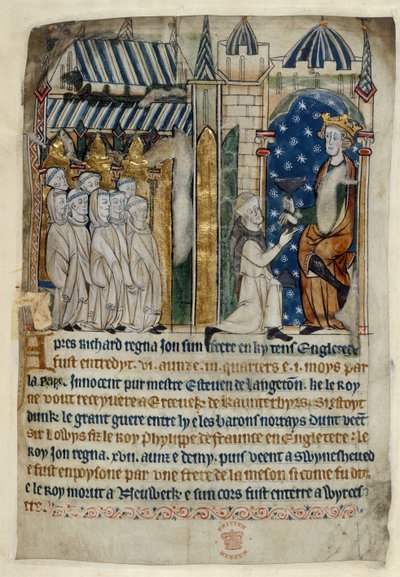 Apres Richard regna Jon sun frere en ky tens Engletere
fust entredyt .vi. aunz e .iii. quarters e .i. moys par
la Pape Innocent pur mestre Estevene de Langeton, ke le Roy
ne vout receyvere a Erceveske de Kaunterbyrs. Si estoyt
dunk le grant guere entre ly e les barons norrays dunt veent
sir Lowys fiz le Roy Phylipe de Fraunce en Engletere. le
Roy Jon regna .xvii. aunz e demy. puis veent a Swynesheved
e fust enpoysone par une frere de la meson si come fu dit
e le Roy morut a Neuwerk e sun cors fust enterre a Wyrcest
BRITISH
MUSEUM